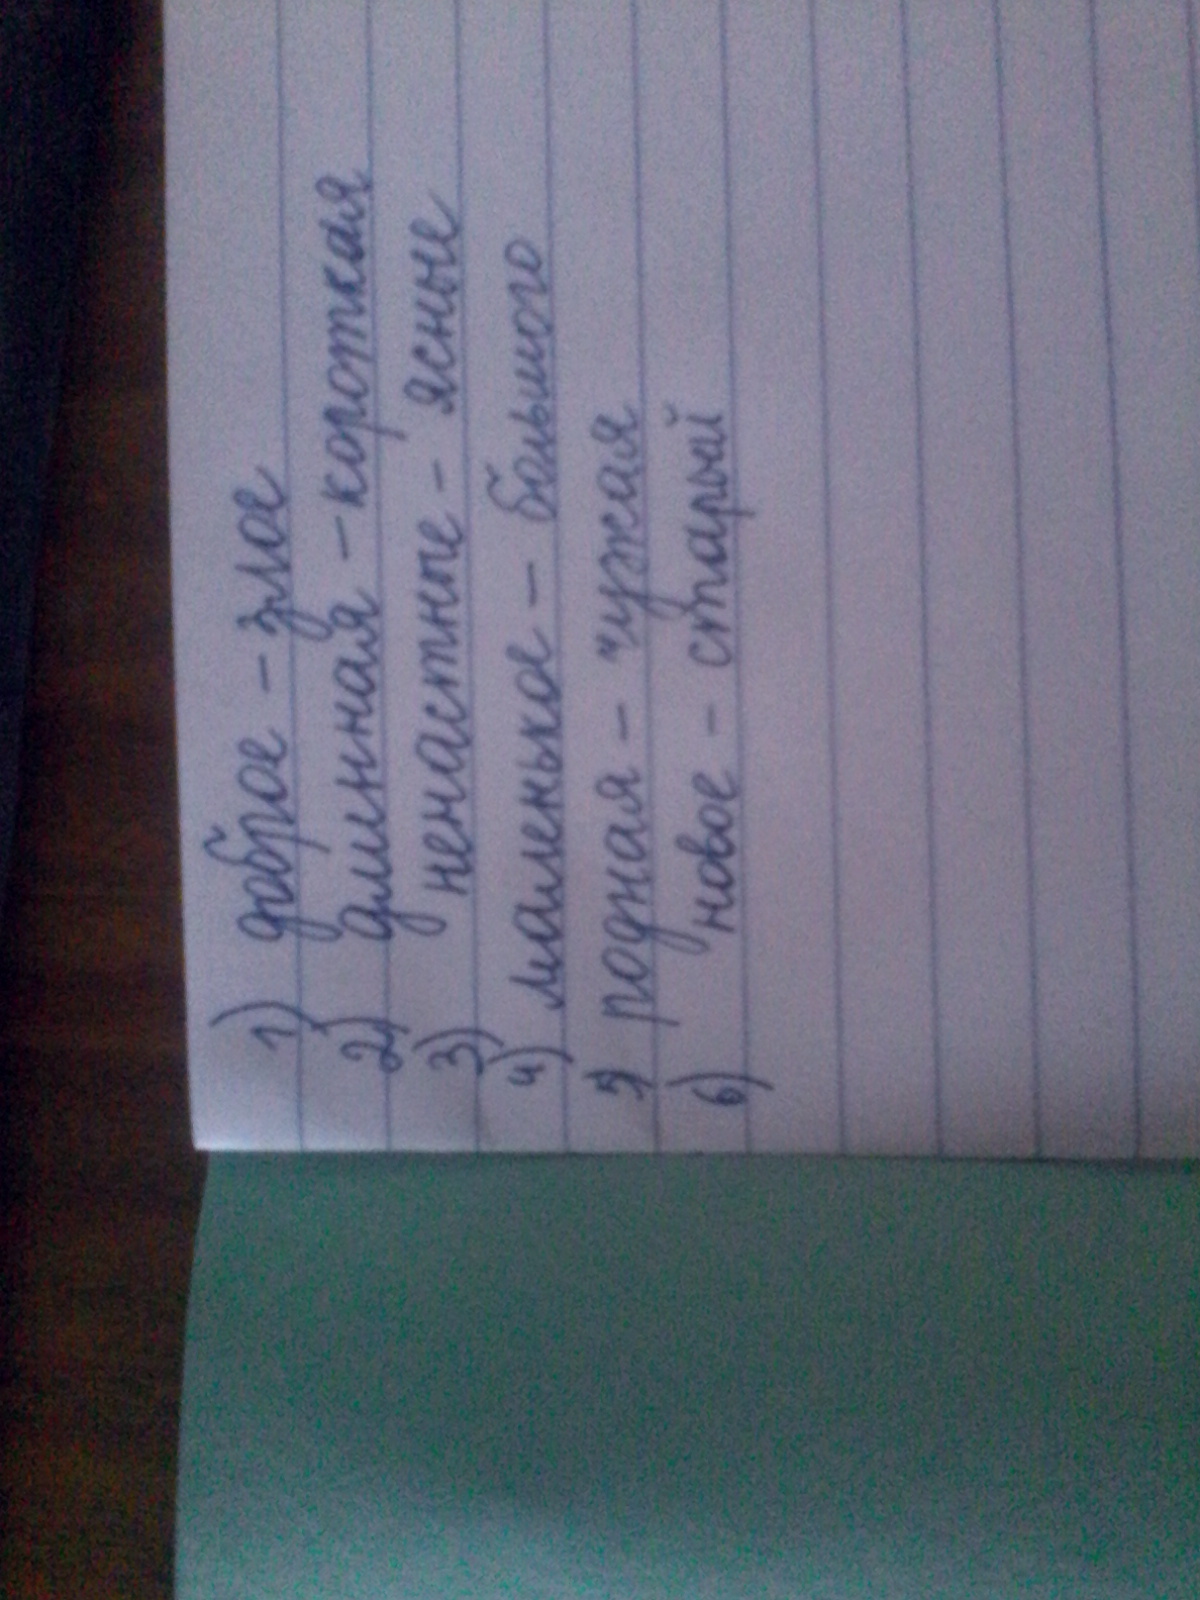 1) доброе - злое
2) длинная - короткая
3) ненастные - ясные
4) маленькое - большого
5) родная - чужая
6) новое - старый